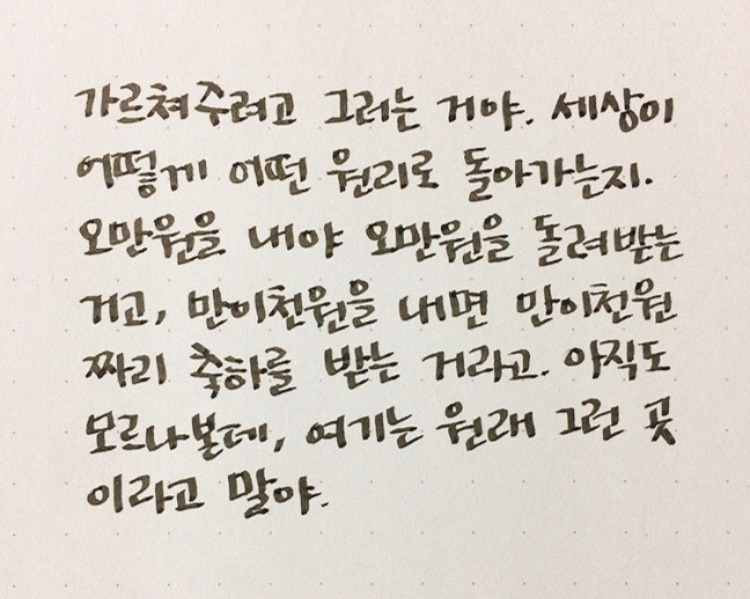 가르쳐주려고 그러는 거야. 세상이
어떻게 어떤 원리로 돌아가는지.
오만원을 내야 오만원을 돌려받는
거고, 만이천원을 내면 만이천원
짜리 축하를 받는 거라고. 아직도
모르나본데, 여기는 원래 그런 곳
이라고 말야.